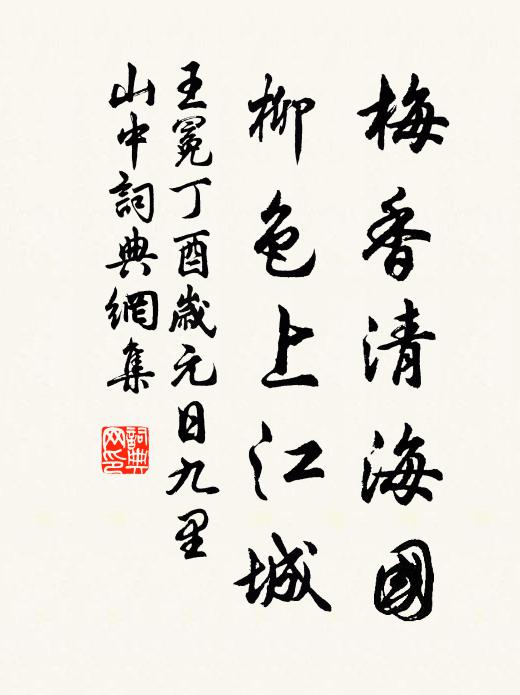 梅香清海國
柳色上江城
王冕丁酉歲元日九里
山中詞典網集
詞典
网印